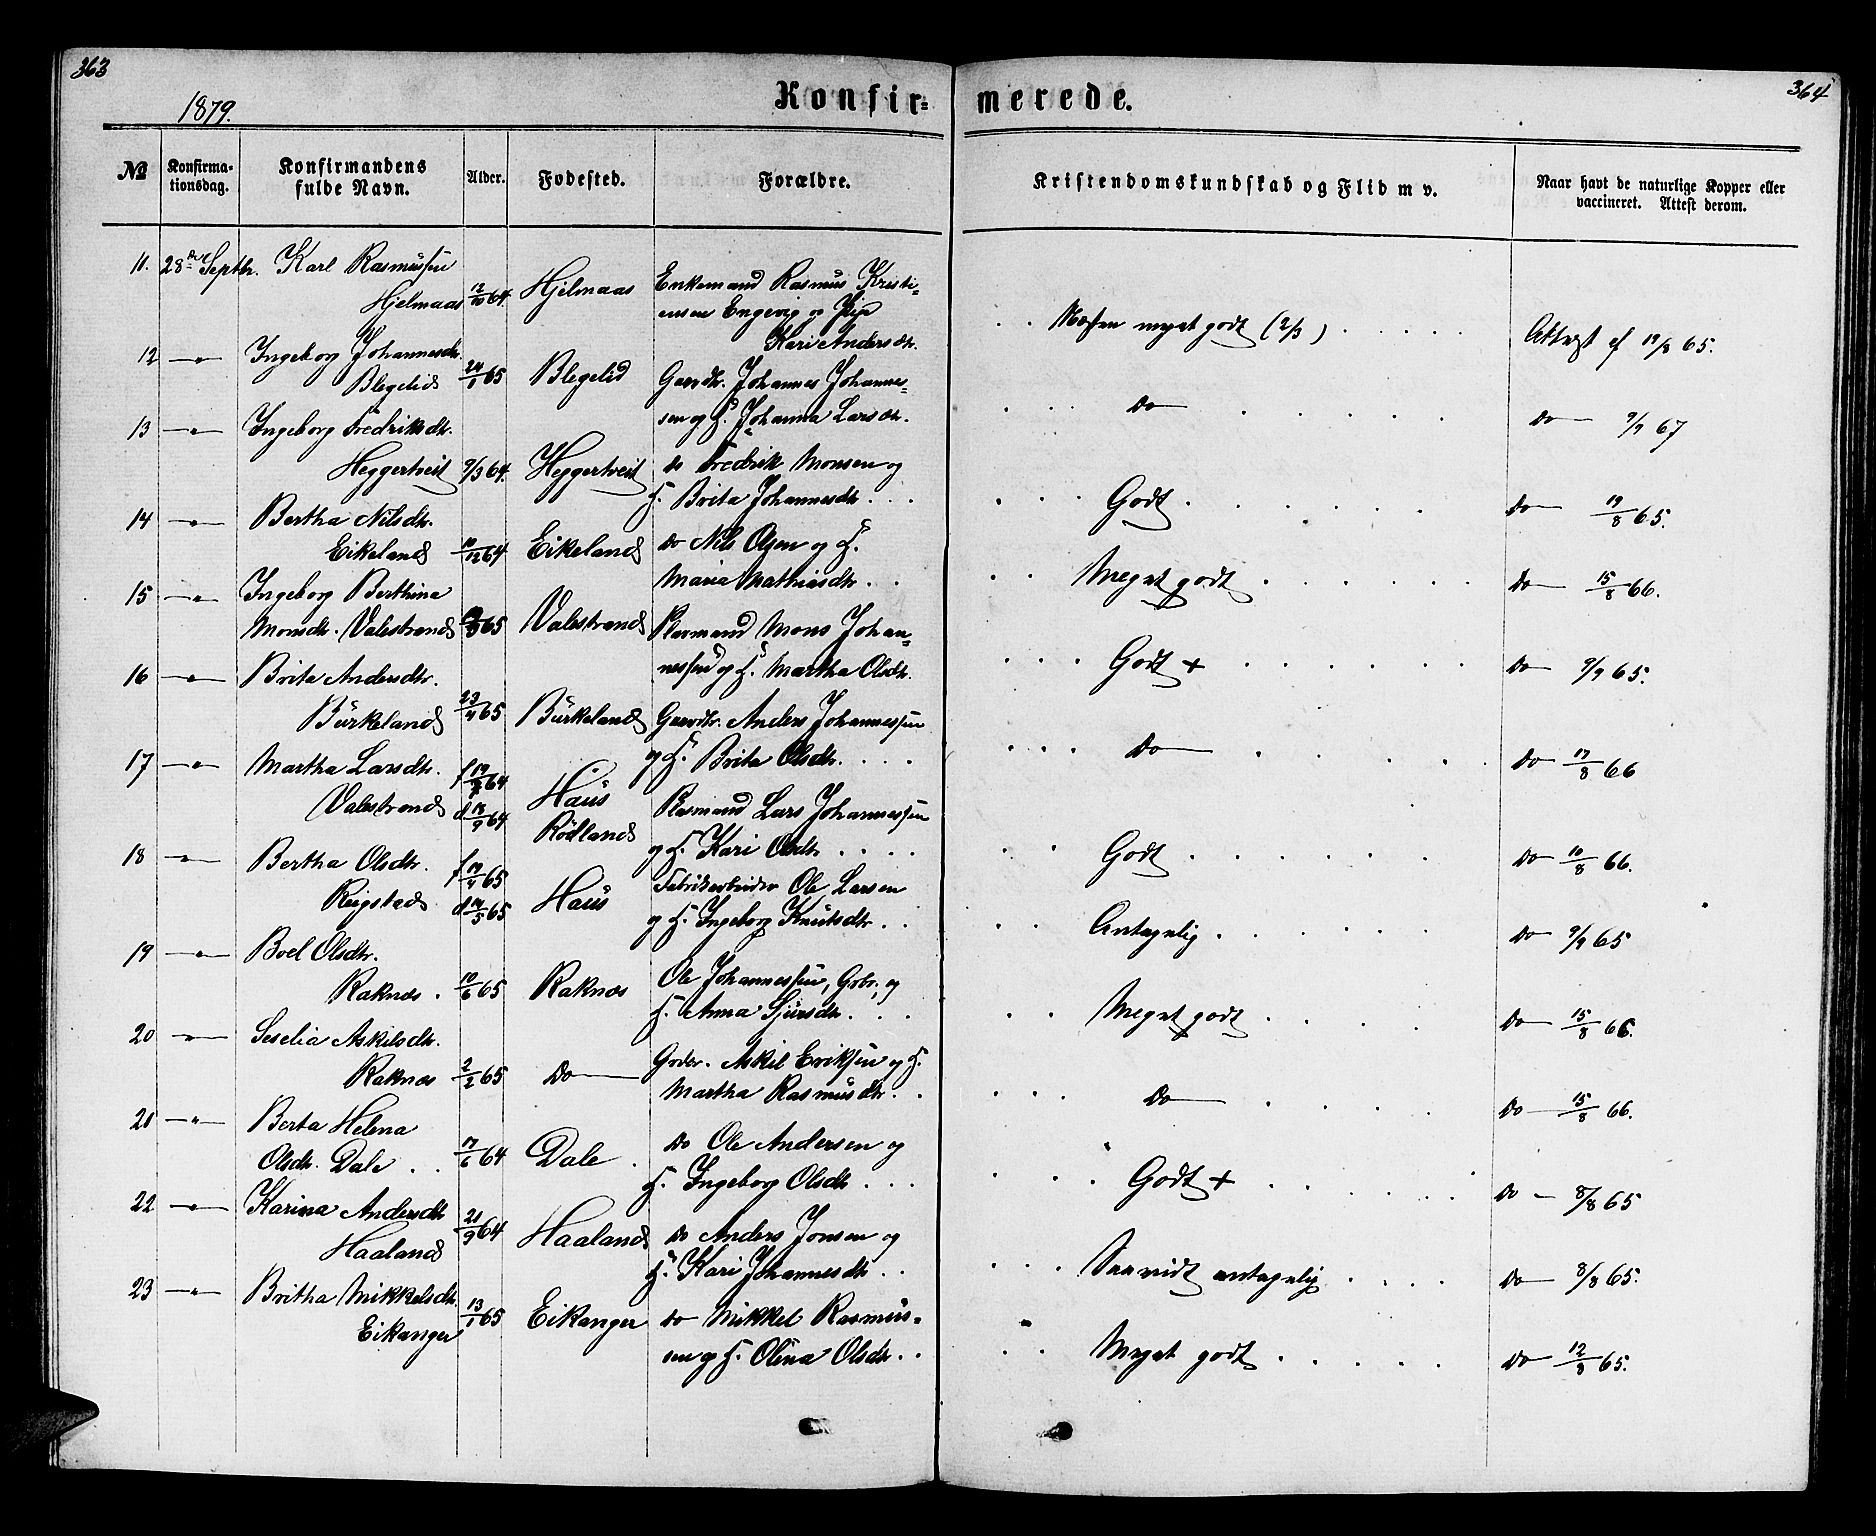 363
1879.
Konfir-
merede.
364
No
Konfirma-
tionsdag.
Konfirmandens
fulde Navn.
Alder.
Fødested.
Forældre.
Kristendomskundskab og Flid m v.
Naar havt de naturlige Kopper eller
vaccineret. Attest derom.
11. 28de Septbr. Karl Rasmussen
Hjelmaas 12/10 64. Hjelmaas
Enkemand Rasmus Kristi-
ensen Engevig og
Kari Andersdtr.
Næsten meget godt (2/3)
Attest af 19/8 65.
12 —"— Ingeborg Johannesdtr.
Blegelid 24/1 65 Blegelid
Gaardbr. Johannes Johannes-
sen og H. Johanna Larsdtr.
Do
Do 9/9 67
13 —"— Ingeborg Fredriksdtr.
Heggertveit 9/3 64. Heggertveit
do Fredrik Monsen og
H. Brita Johannesdtr.
Godt
Do 19/8 65.
14 —"— Bertha Nilsdtr.
Eikeland 10/12 64 Eikeland
do Nils Olsen og H.
Maria Mathiasdtr.
Meget godt
Do 15/8 66.
15 —"— Ingeborg Berthina
Monsdtr. Valestrand 65 Valestrand
Mons Johan-
nessen og H. Martha Olsdtr.
Godt +
Do 9/9 65.
16 —"— Brita Andersdtr.
Burkeland 23/4 65 Burkeland
Gaardbr. Anders Johannessen
og H. Brita Olsdtr.
Do
Do 17/8 66
17 —"— Martha Larsdtr. f 64
Valestrand d 18/9 64
Haus
Rödland
Lars Johannessen
og H. Kari Olsdtr.
Godt
Do 10/8 66.
18 —"— Bertha Olsdtr. f 19/4 65
Reigstad d 14/5 65 Haus
Fabrikarbeider Ole Larsen
og H. Ingeborg Knutsdtr.
Antagelig
Do 9/9 65
19 —"— Boel Olsdtr.
Raknes. 10/6 65 Raknes
Ole Johannessen, Grbr., og
H. Anna Sjursdtr.
Meget godt
Do 15/8 66.
20 —"— Seselia Askilsdtr.
Raknes 2/2 65 Do
Grdbr. Askil Eriksen og H.
Martha Rasmusdtr.
Do
Do 15/8 66.
21 —"— Berta Helena
Olsdtr. Dale 17/6 64 Dale
do Ole Andersen og
H. Ingeborg Olsdtr
Godt +
Do 8/8 65
22 —"— Karina Andersdtr
Haaland 21/9 64 Haaland
do Anders Jonsen og
H. Kari Johannesdtr
Saavidt antagelig
Do 8/8 65.
23 —"— Britha Mikkelsdtr.
Eikanger 13/1 65 Eikanger
do Mikkel Rasmus-
sen og H. Olina Olsdtr
Meget godt
Do 12/8 65.